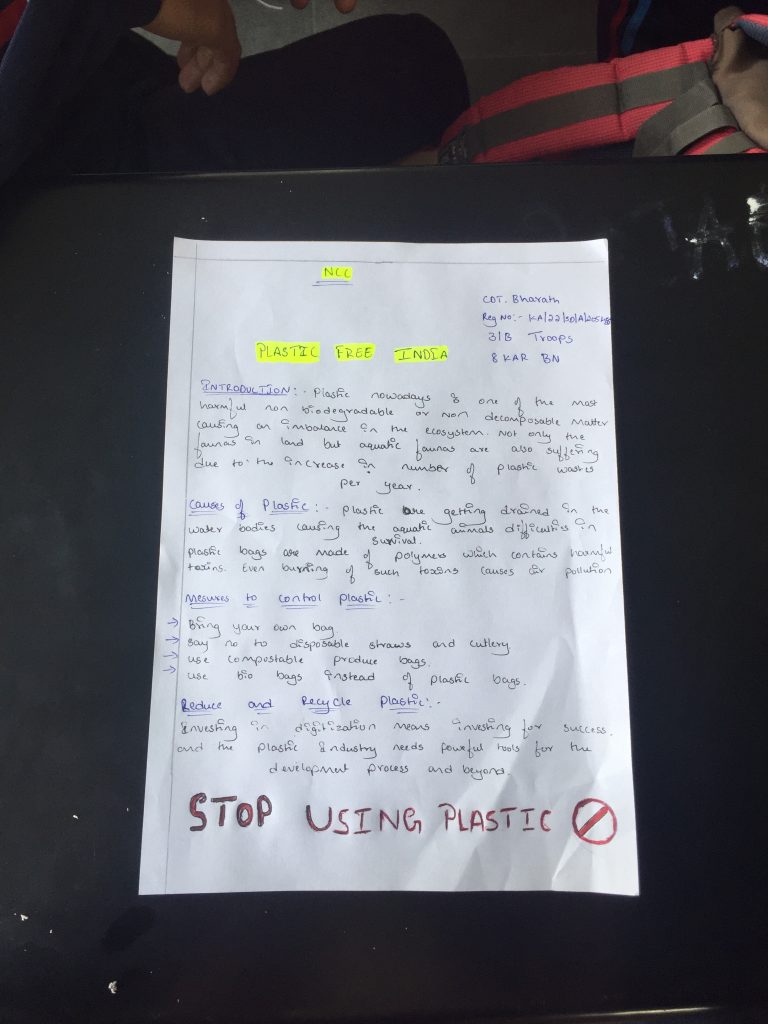 NCC
CDT. Bharath
Reg No:- KA/22/SD/A/205
3/B Troops
8 KAR BN
PLASTIC FREE INDIA
INTRODUCTION:- Plastic nowadays is one of the most
harmful non biodegradable or non decomposable matter
causing an imbalance in the ecosystem. Not only the
faunas in land but aquatic faunas are also suffering
due to the increase in number of plastic wastes
per year.
Causes of Plastic:- Plastic are getting drained in the
water bodies causing the aquatic animals difficulties in
survival.
Plastic bags are made of polymers which contains harmful
toxins. Even burning of such toxins causes air pollution
Mesures to control plastic:-
→ Bring your own bag.
→ Say no to disposable straws and cutlery
→ use compostable produce bags.
→ use bio bags instead of plastic bags.
Reduce and Recycle Plastic:-
Investing in digitization means investing for success.
and the Plastic Industry needs powerful tools for the
development process and beyond.
STOP USING PLASTIC